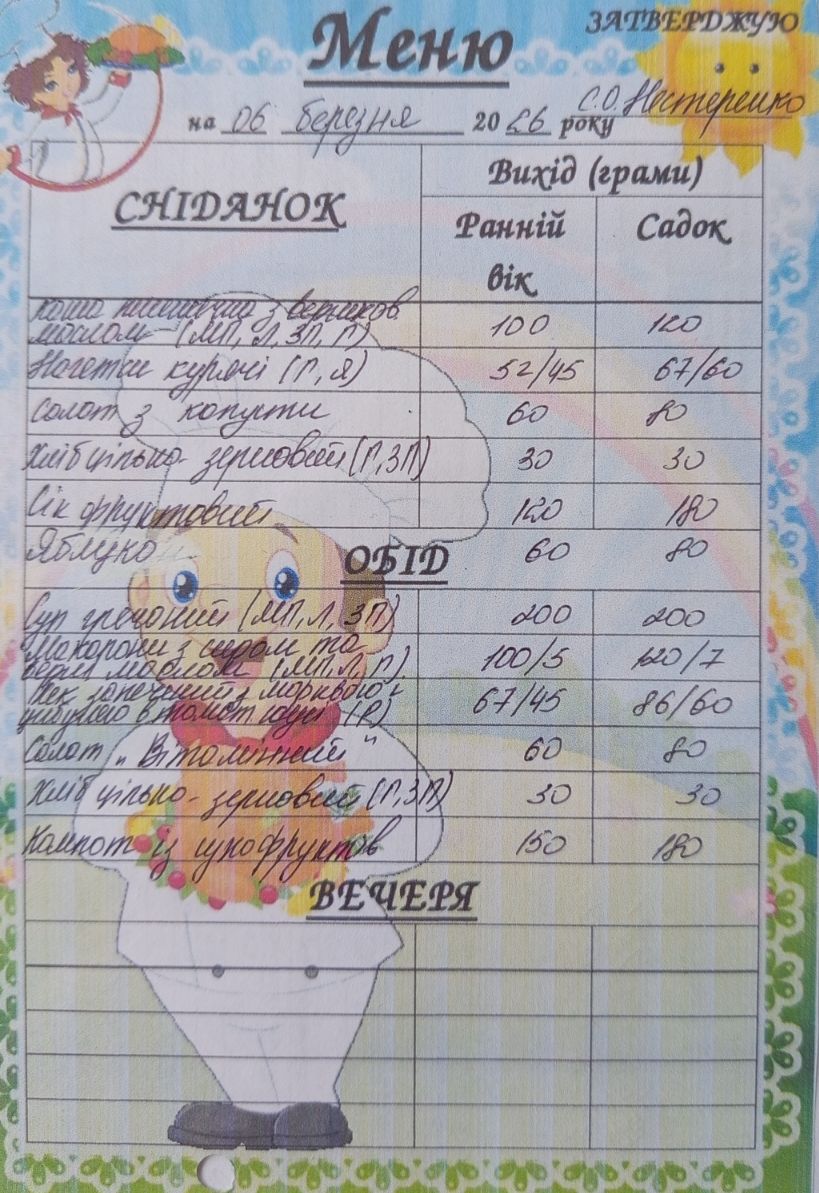 ЗАТВЕРДЖУЮ
Меню
С.О. Нестеренко
на 06 березня 2026 року
СНІДАНОК
Вихід (грами)
Ранній вік
Садок
Каша пшенична з вершков
маслом (МП, Л, ЗП, Г) 100 120
Нагетси курячі (Г, Я) 52/45 67/60
Салат з капусти 60 80
Хліб цільно-зерновий (Г, ЗП) 30 30
Сік фруктовий 120 180
Яблуко 60 80
ОБІД
Суп гречаний (МП, Л, ЗП) 200 200
Макарони з сиром та
верш маслом (МП, Л, Г) 100/5 120/7
Хек запечений з морквою і
цибулею в томат соусі (Р) 67/45 86/60
Салат „Вітамінний" 60 80
Хліб цільно-зерновий (Г, ЗП) 30 30
Компот із сухофруктів 150 180
ВЕЧЕРЯ